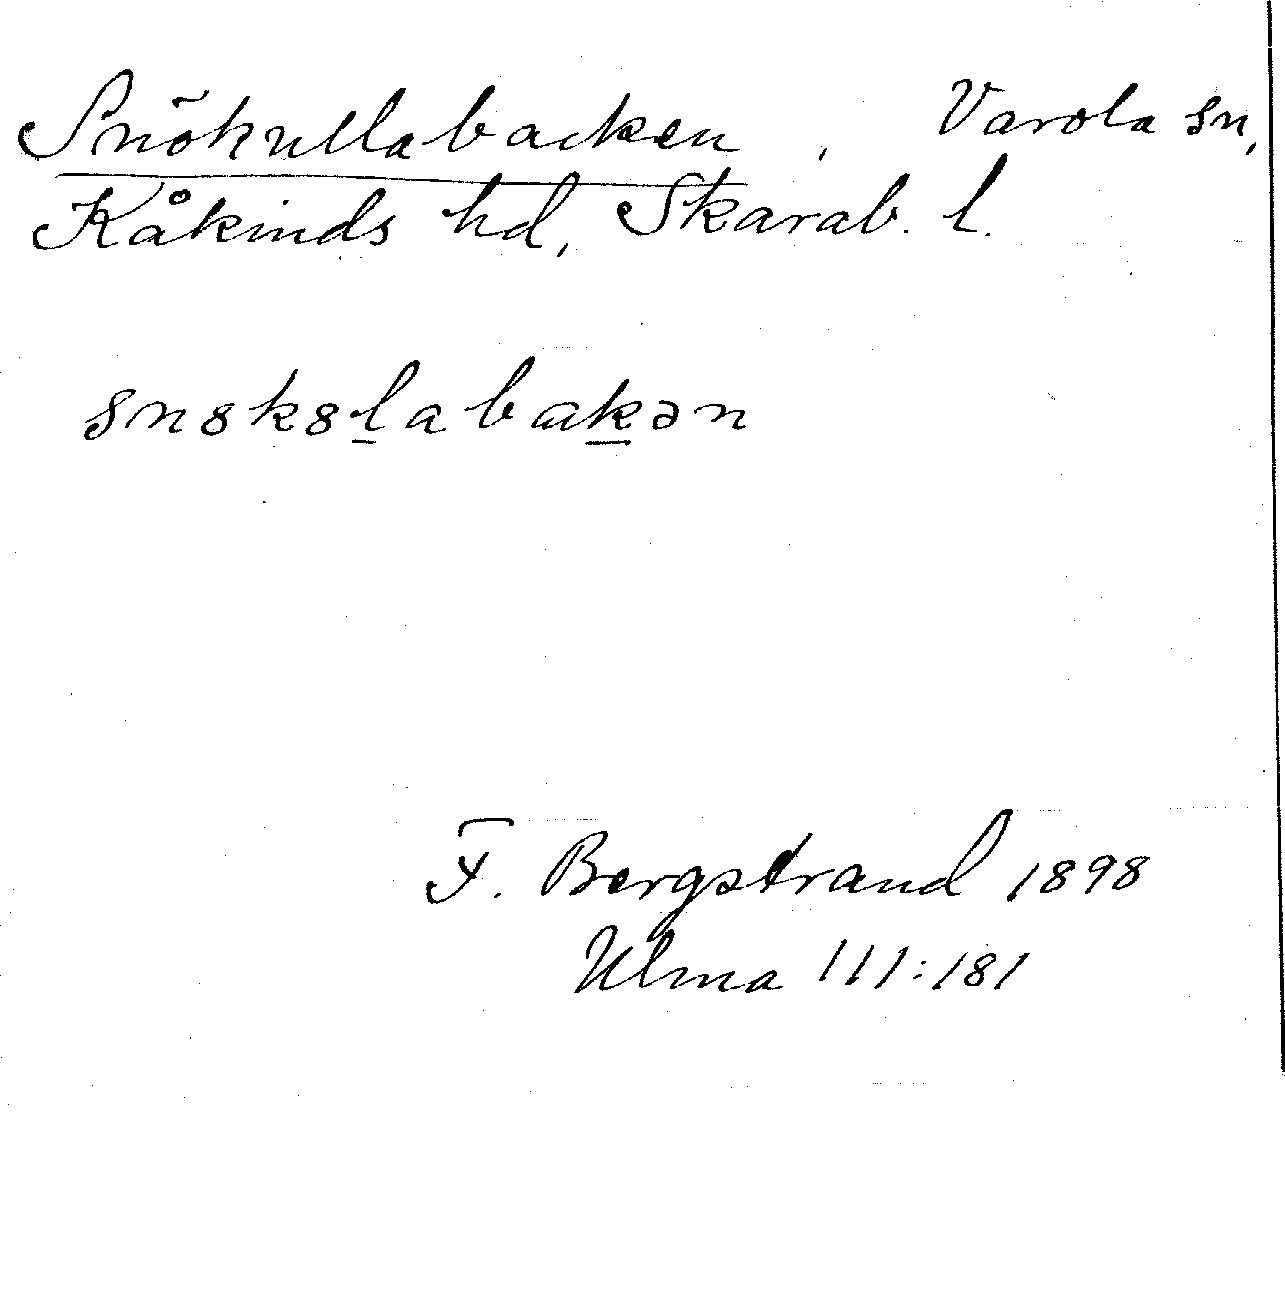 Snökullabacken, Varola sn,
Kåkinds hd, Skarab. l.
snɞkɞl̲abak̲ən
F. Bergstrand 1898
Ulma 111:181